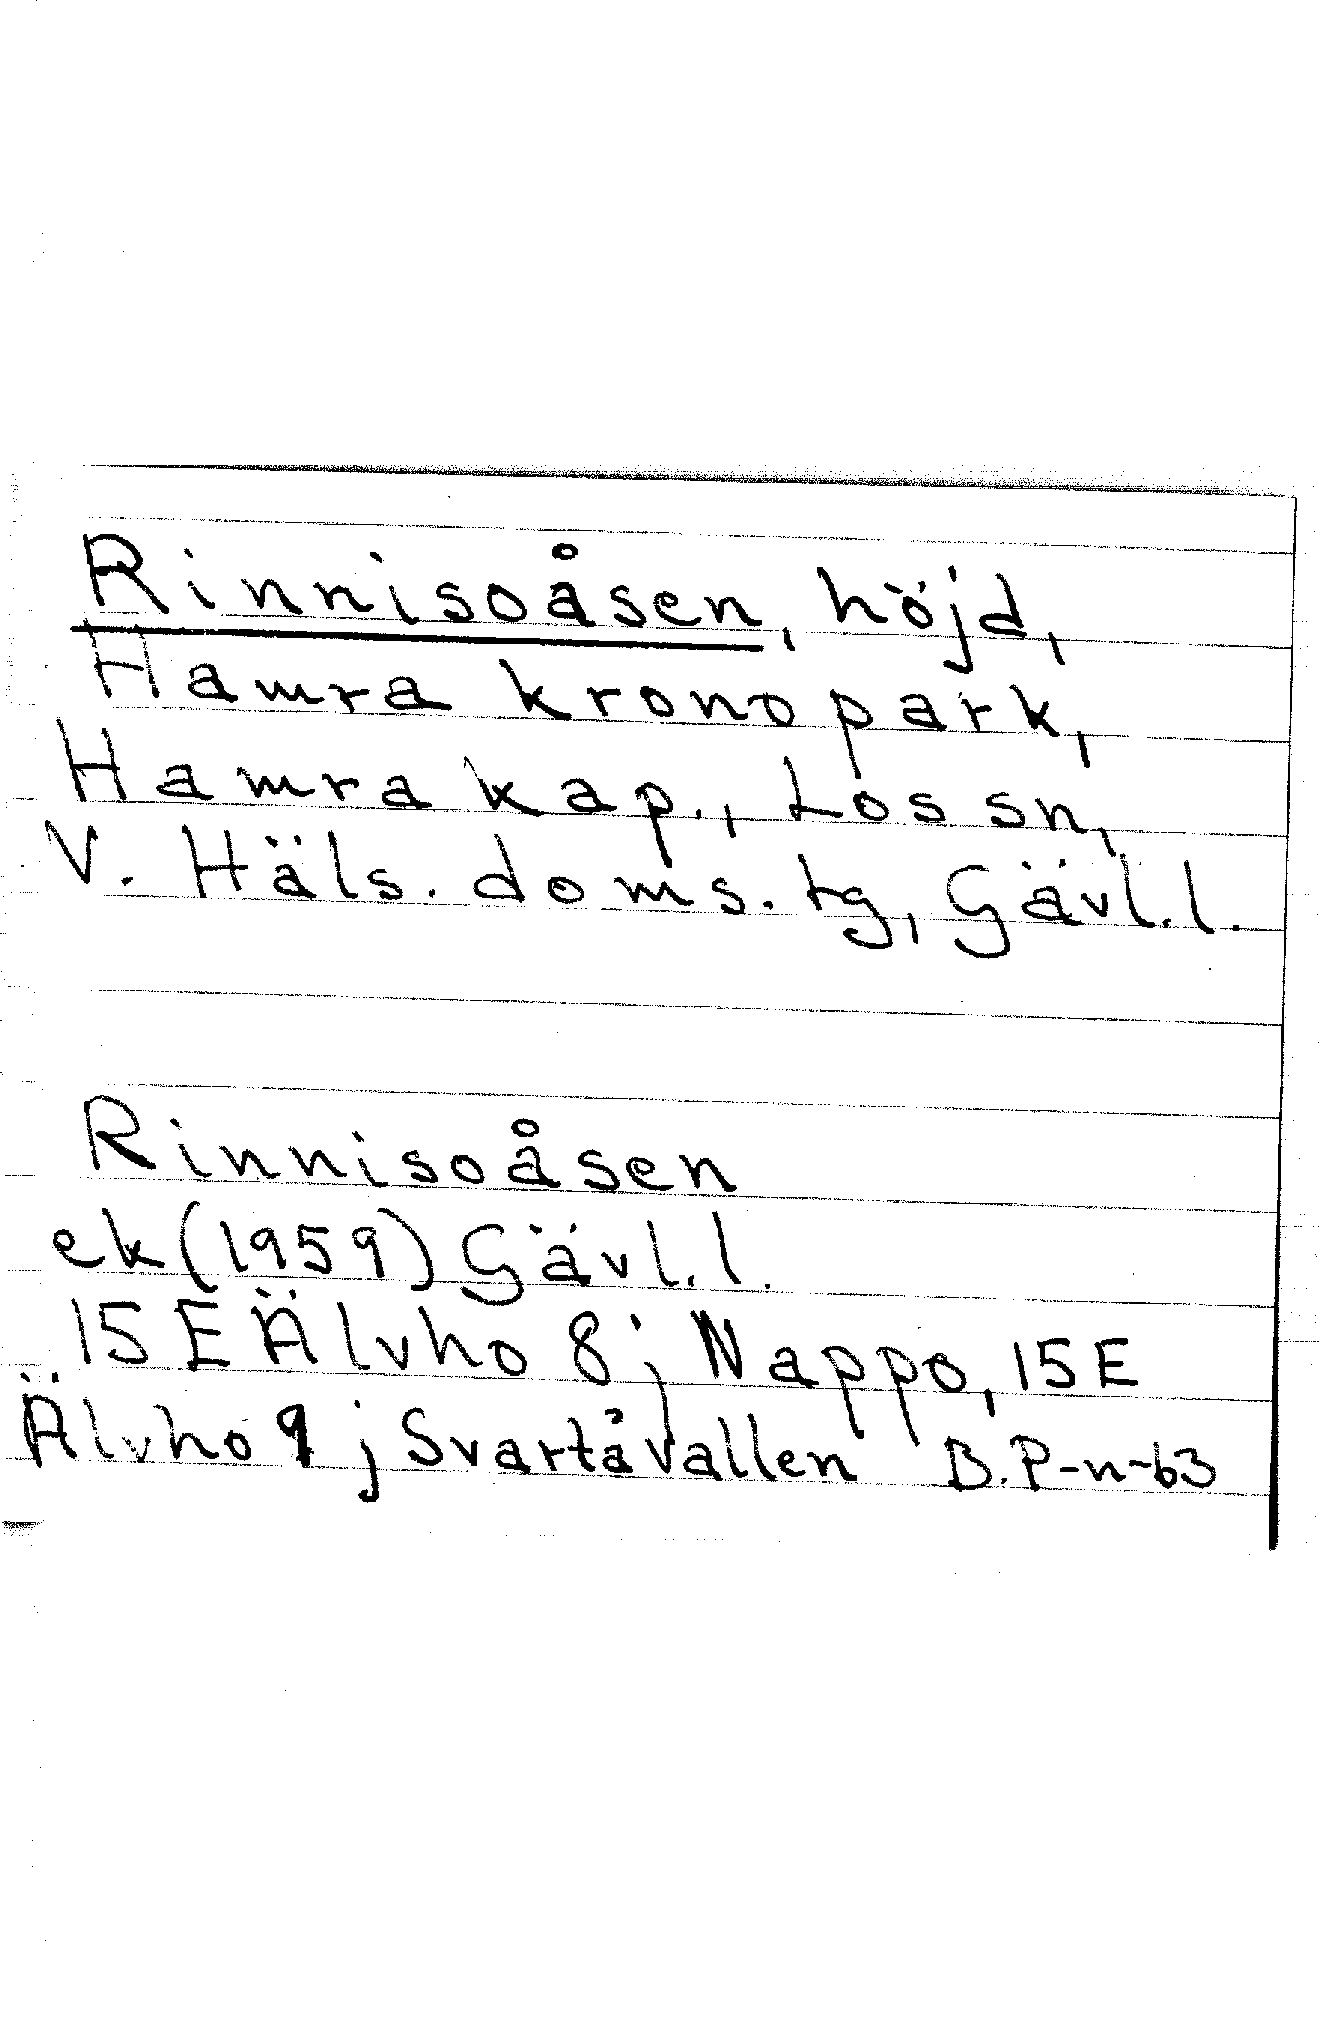 Rinnisoåsen, höjd,
Hamra kronopark,
Hamra kap., Los sn,
V. Häls. doms. tg, Gävl. l.
Rinnisoåsen
ek (1959) Gävl. l.
15 E Älvho 8; Nappo, 15 E
Älvho 9; Svartåvallen B. P-n-63